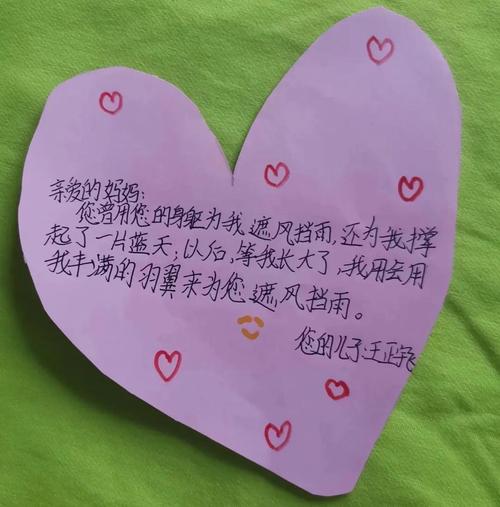 亲爱的妈妈:
您曾用您的身躯为我遮风挡雨,还为我撑
起了一片蓝天;以后,等我长大了,我用会用
我丰满的羽翼来为您遮风挡雨。
您的儿子:王正宇飞